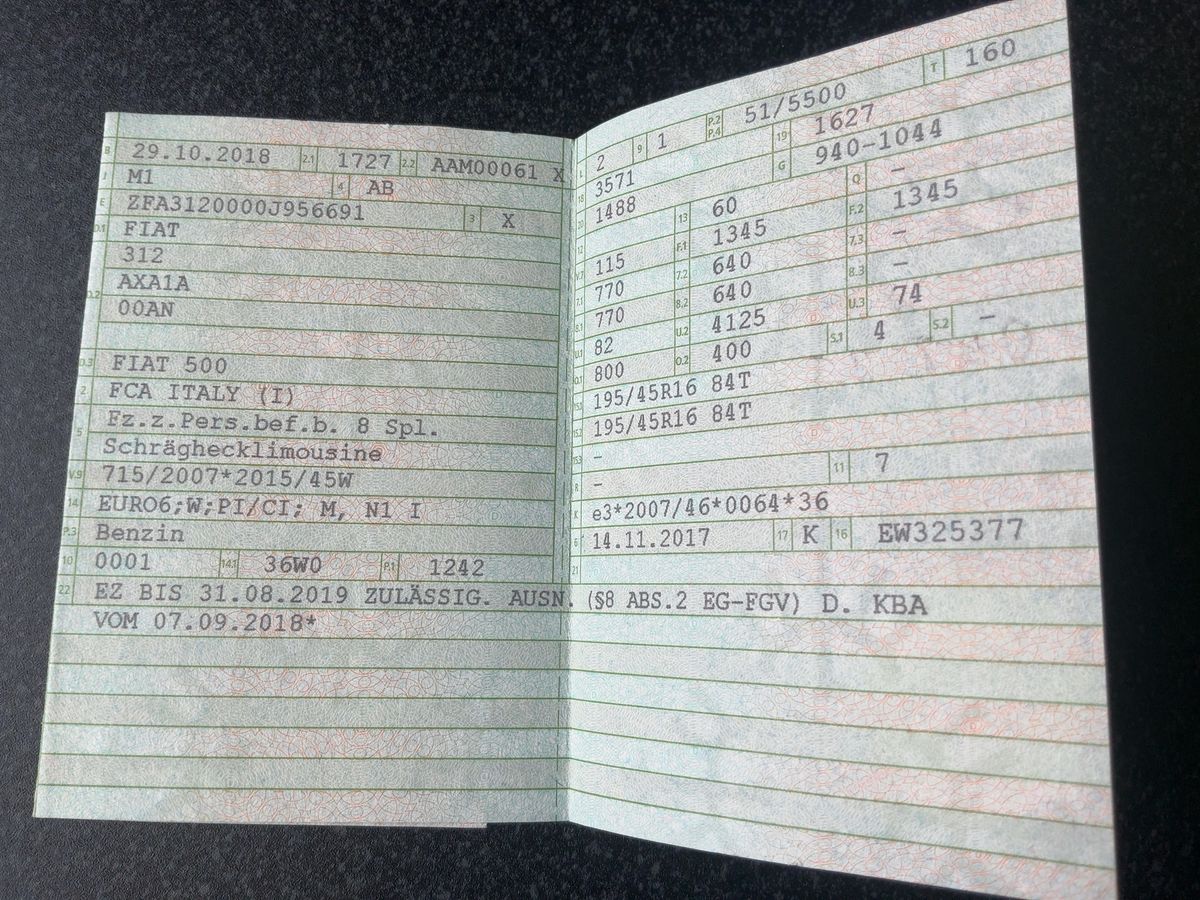 B 29.10.2018 2.1 1727 2.2 AAM00061 X
J M1 4 AB
E ZFA3120000J956691 3 X
D.1 FIAT
312
D.2 AXA1A
00AN
D.3 FIAT 500
2 FCA ITALY (I)
5 Fz.z.Pers.bef.b. 8 Spl.
Schräghecklimousine
V.9 715/2007*2015/45W
14 EURO6;W;PI/CI; M, N1 I
P.3 Benzin
10 0001 14.1 36W0 P.1 1242
L 2 9 1 P.2 P.4 51/5500 T 160
18 3571 19 1627
20 1488 G 940-1044
12 13 60 Q –
V.7 115 F.1 1345 F.2 1345
7.1 770 7.2 640 7.3 –
8.1 770 8.2 640 8.3 –
U.1 82 U.2 4125 U.3 74
O.1 800 O.2 400 S.1 4 S.2 –
15.1 195/45R16 84T
15.2 195/45R16 84T
15.3 –
R – 11 7
K e3*2007/46*0064*36
6 14.11.2017 17 K 16 EW325377
21
22 EZ BIS 31.08.2019 ZULÄSSIG. AUSN. (§8 ABS.2 EG-FGV) D. KBA
VOM 07.09.2018*